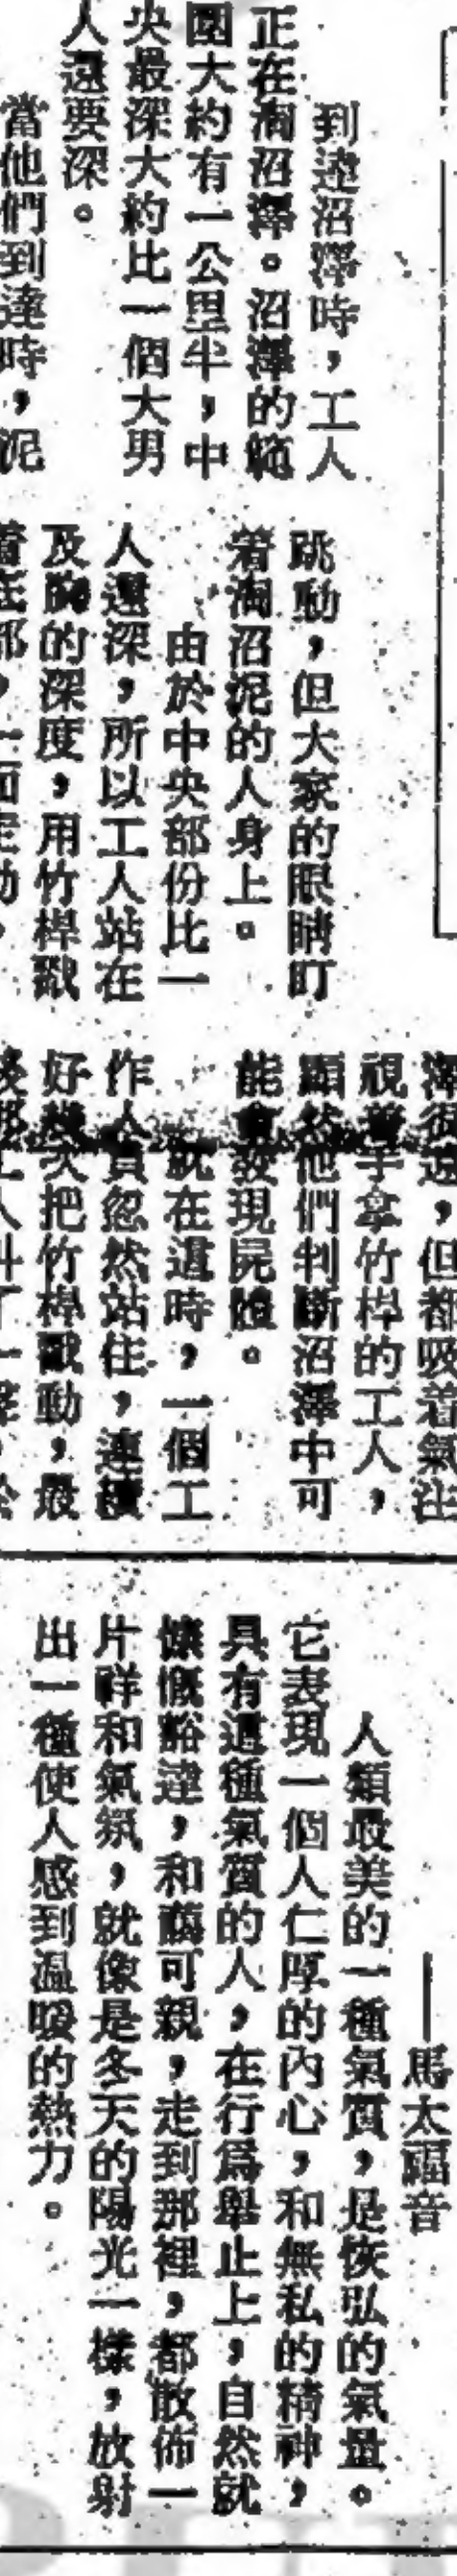 到達沼澤時，工人
正在淘沼澤。沼澤的範
圍大約有一公里半，中
央最深大約比一個大男
人還要深。
當他們到達時，泥
跳動，但大家的眼睛盯
着淘沼泥的人身上。
由於中央部份比一
人還深，所以工人站在
及胸的深度，用竹桿戳
着底部，一面走動，
澤很遠，但都吸着氣注
視着手拿竹桿的工人，
顯然他們判斷沼澤中可
能會發現屍體。
就在這時，一個工
作人員忽然站住，連續
好幾次把竹桿戳動，最
後那工人叫了一聲，於
——馬太福音
人類最美的一種氣質，是恢弘的氣量。
它表現一個人仁厚的內心，和無私的精神，
具有這種氣質的人，在行爲舉止上，自然就
慷慨豁達，和藹可親，走到那裡，都散佈一
片祥和氣氛，就像是冬天的陽光一樣，放射
出一種使人感到溫暖的熱力。